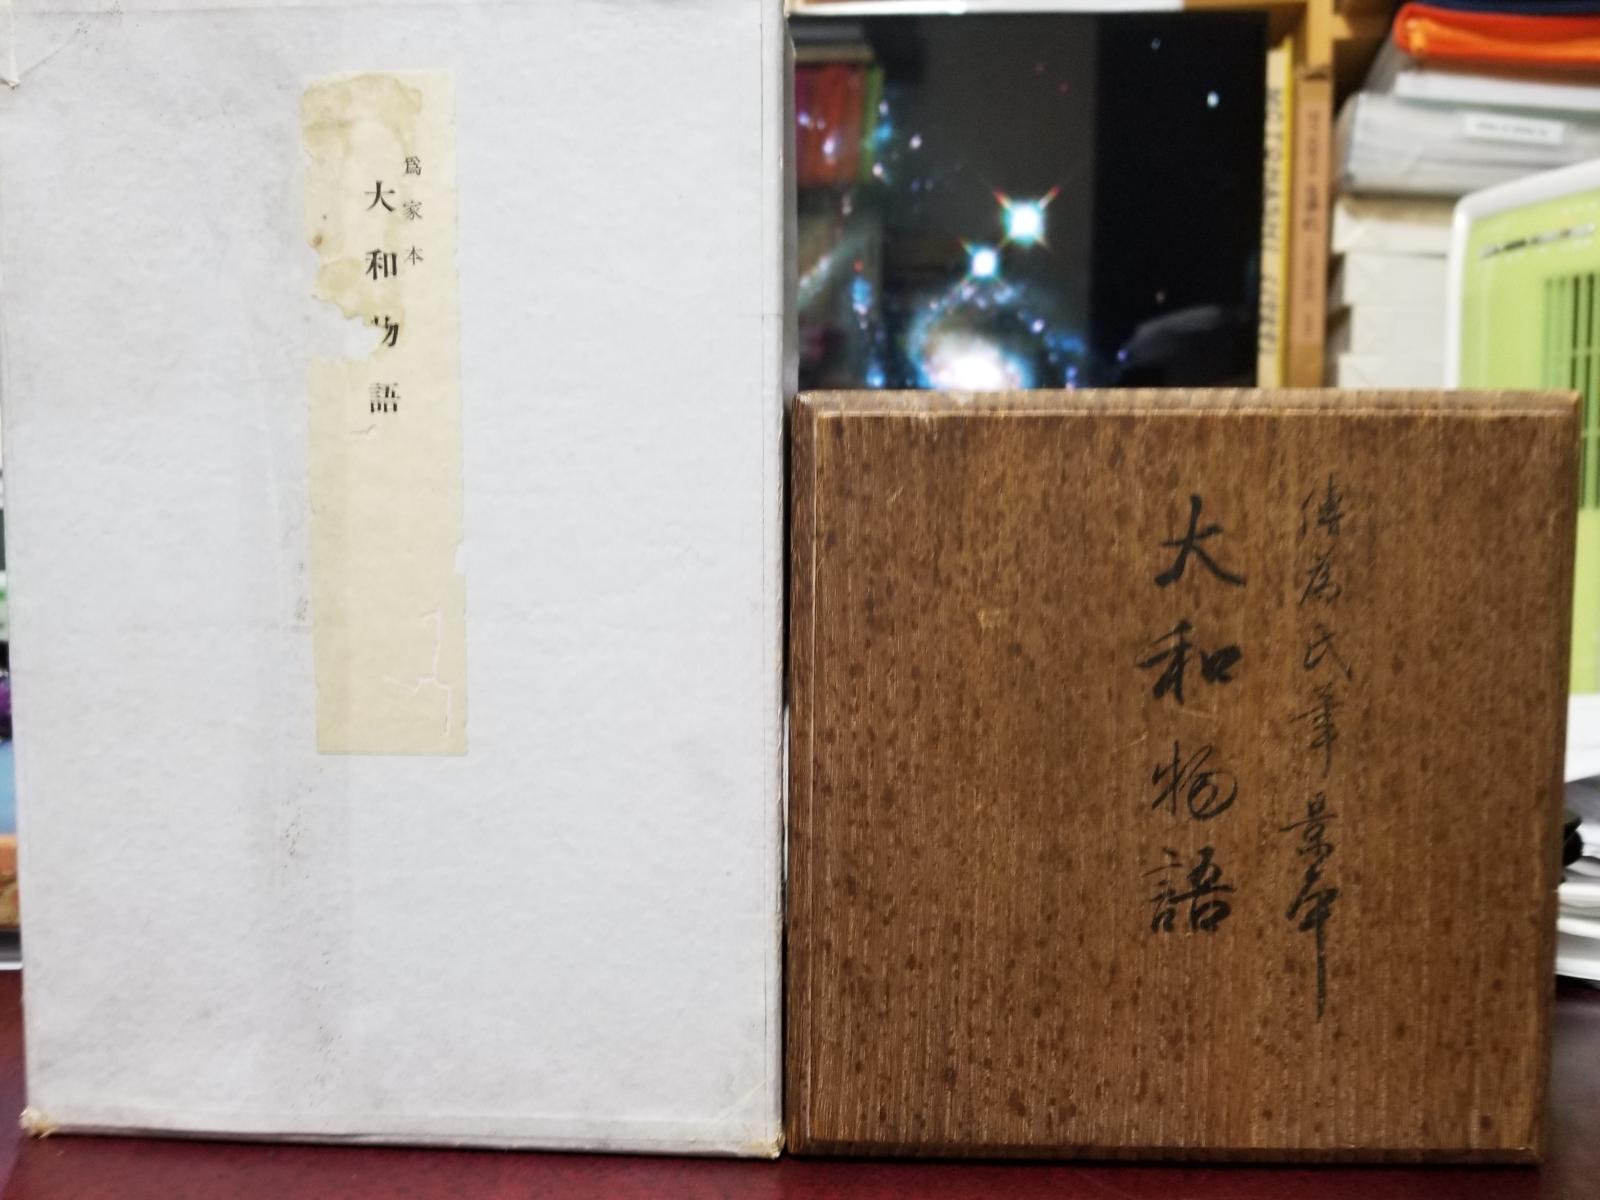 爲家本
大和物語
傳爲氏筆景本
大和物語